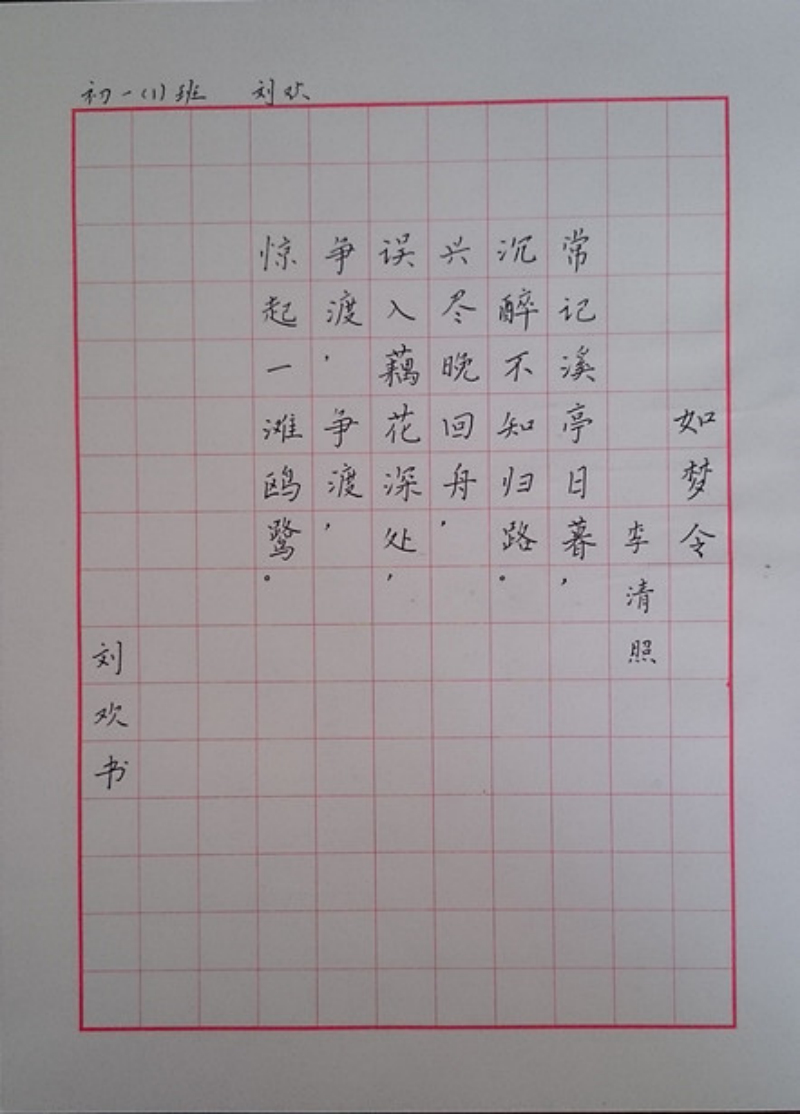 初一(1)班 刘欢
如梦令
李清照
常记溪亭日暮，
沉醉不知归路。
兴尽晚回舟，
误入藕花深处，
争渡，争渡，
惊起一滩鸥鹭。
刘欢书